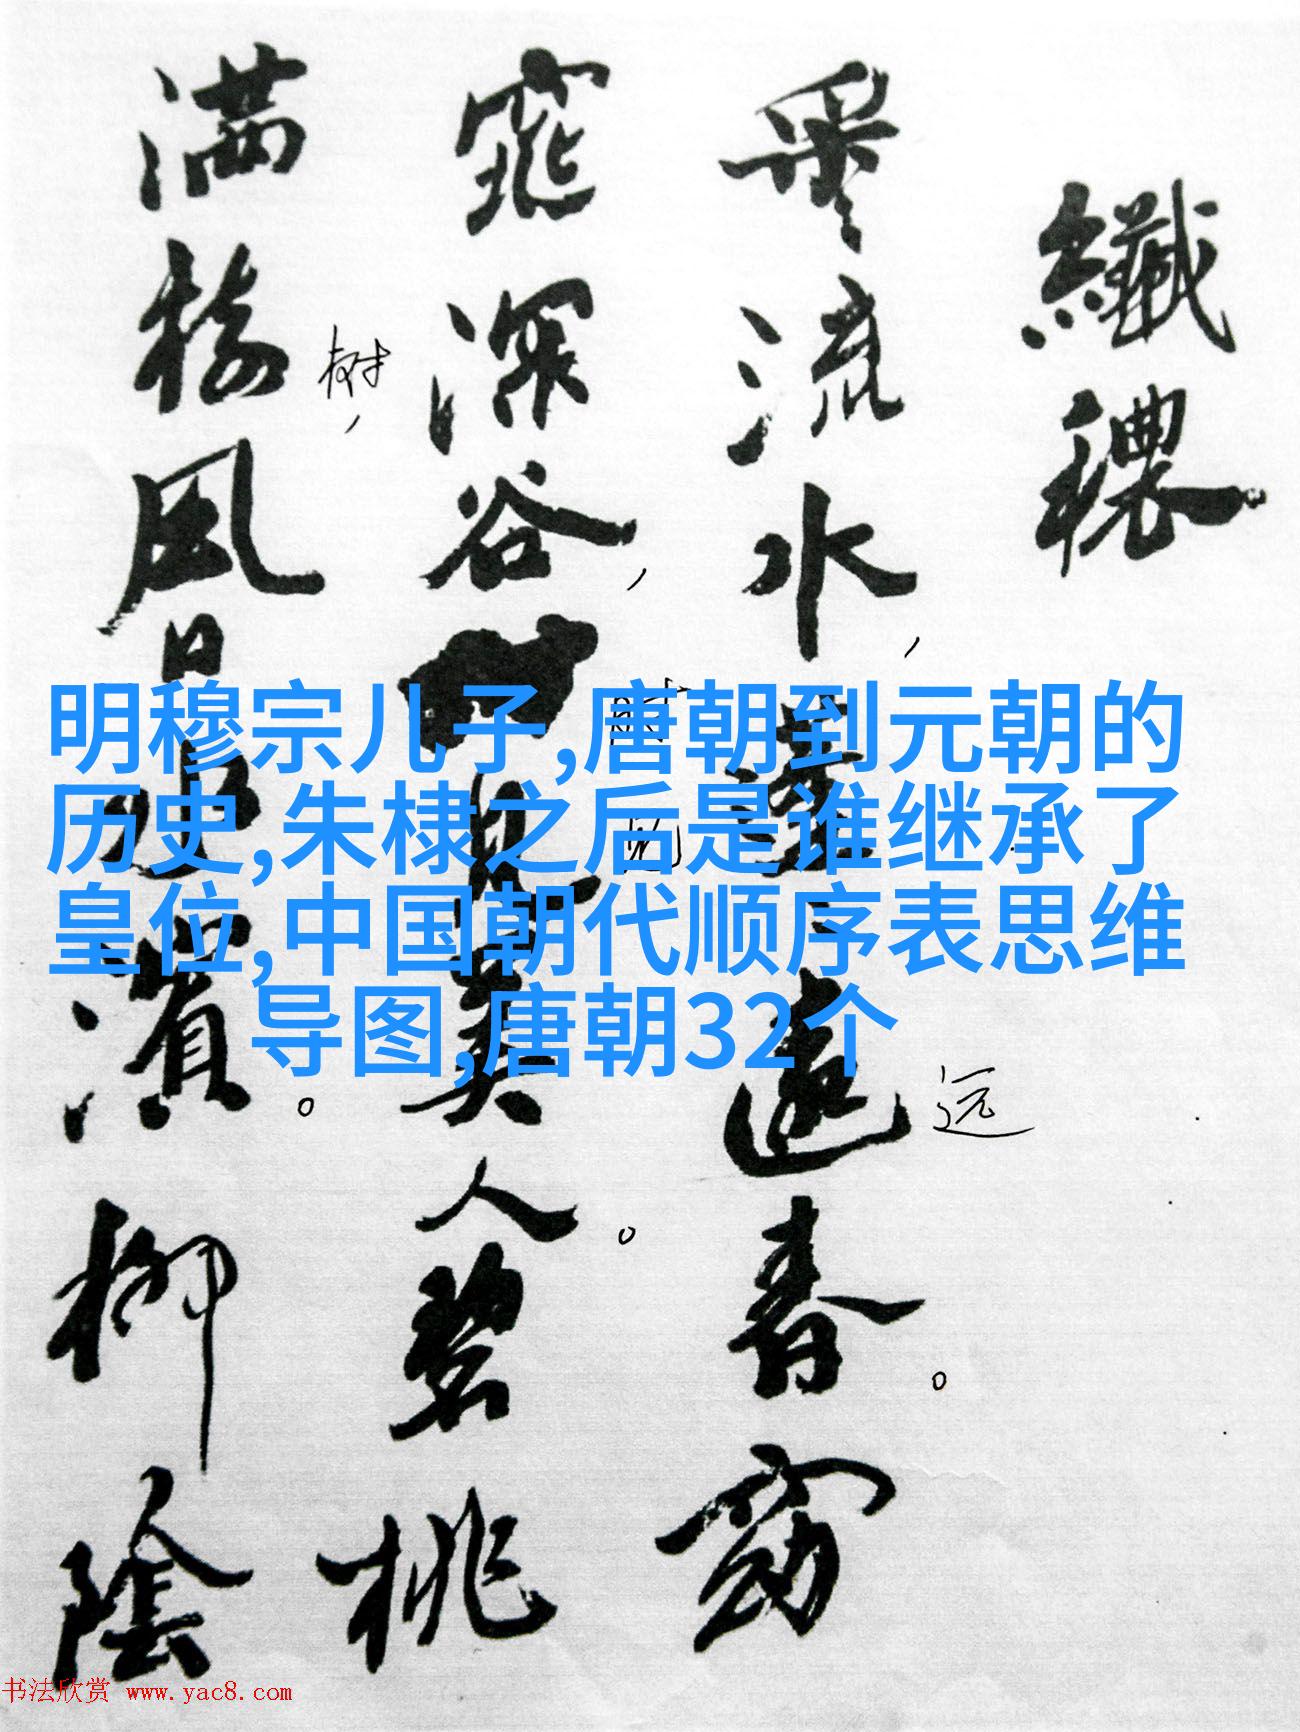 纖穠
采〻流水,蓬〻遠春。窈
远
窕深谷,見美人。碧桃
满樹風日水濱。柳陰
树,
明穆宗儿子,唐朝到元朝的
历史,朱棣之后是谁继承了
皇位,中国朝代顺序表思维
导图,唐朝32个
书法欣赏 www.yac8.com